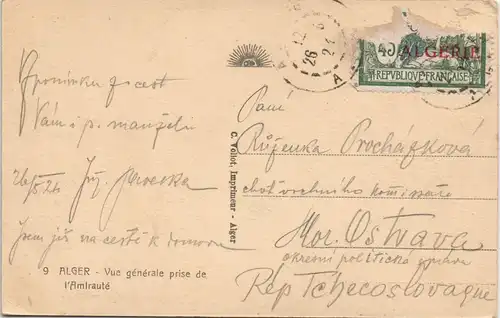 Vzpomínku z cest
Vám i p. manželu
26/5. 26
Jsem již na cestě k domovu
9 ALGER - Vue générale prise de
l'Amirauté
C. Vollot, Imprimeur - Alger
26
45 ALGERIE
REPVBLIQVE FRANÇAISE
Paní
Růženka Procházková
choť vrchního komisaře
Mor. Ostrava
okresní politická správa
Rép Tchecoslovaque